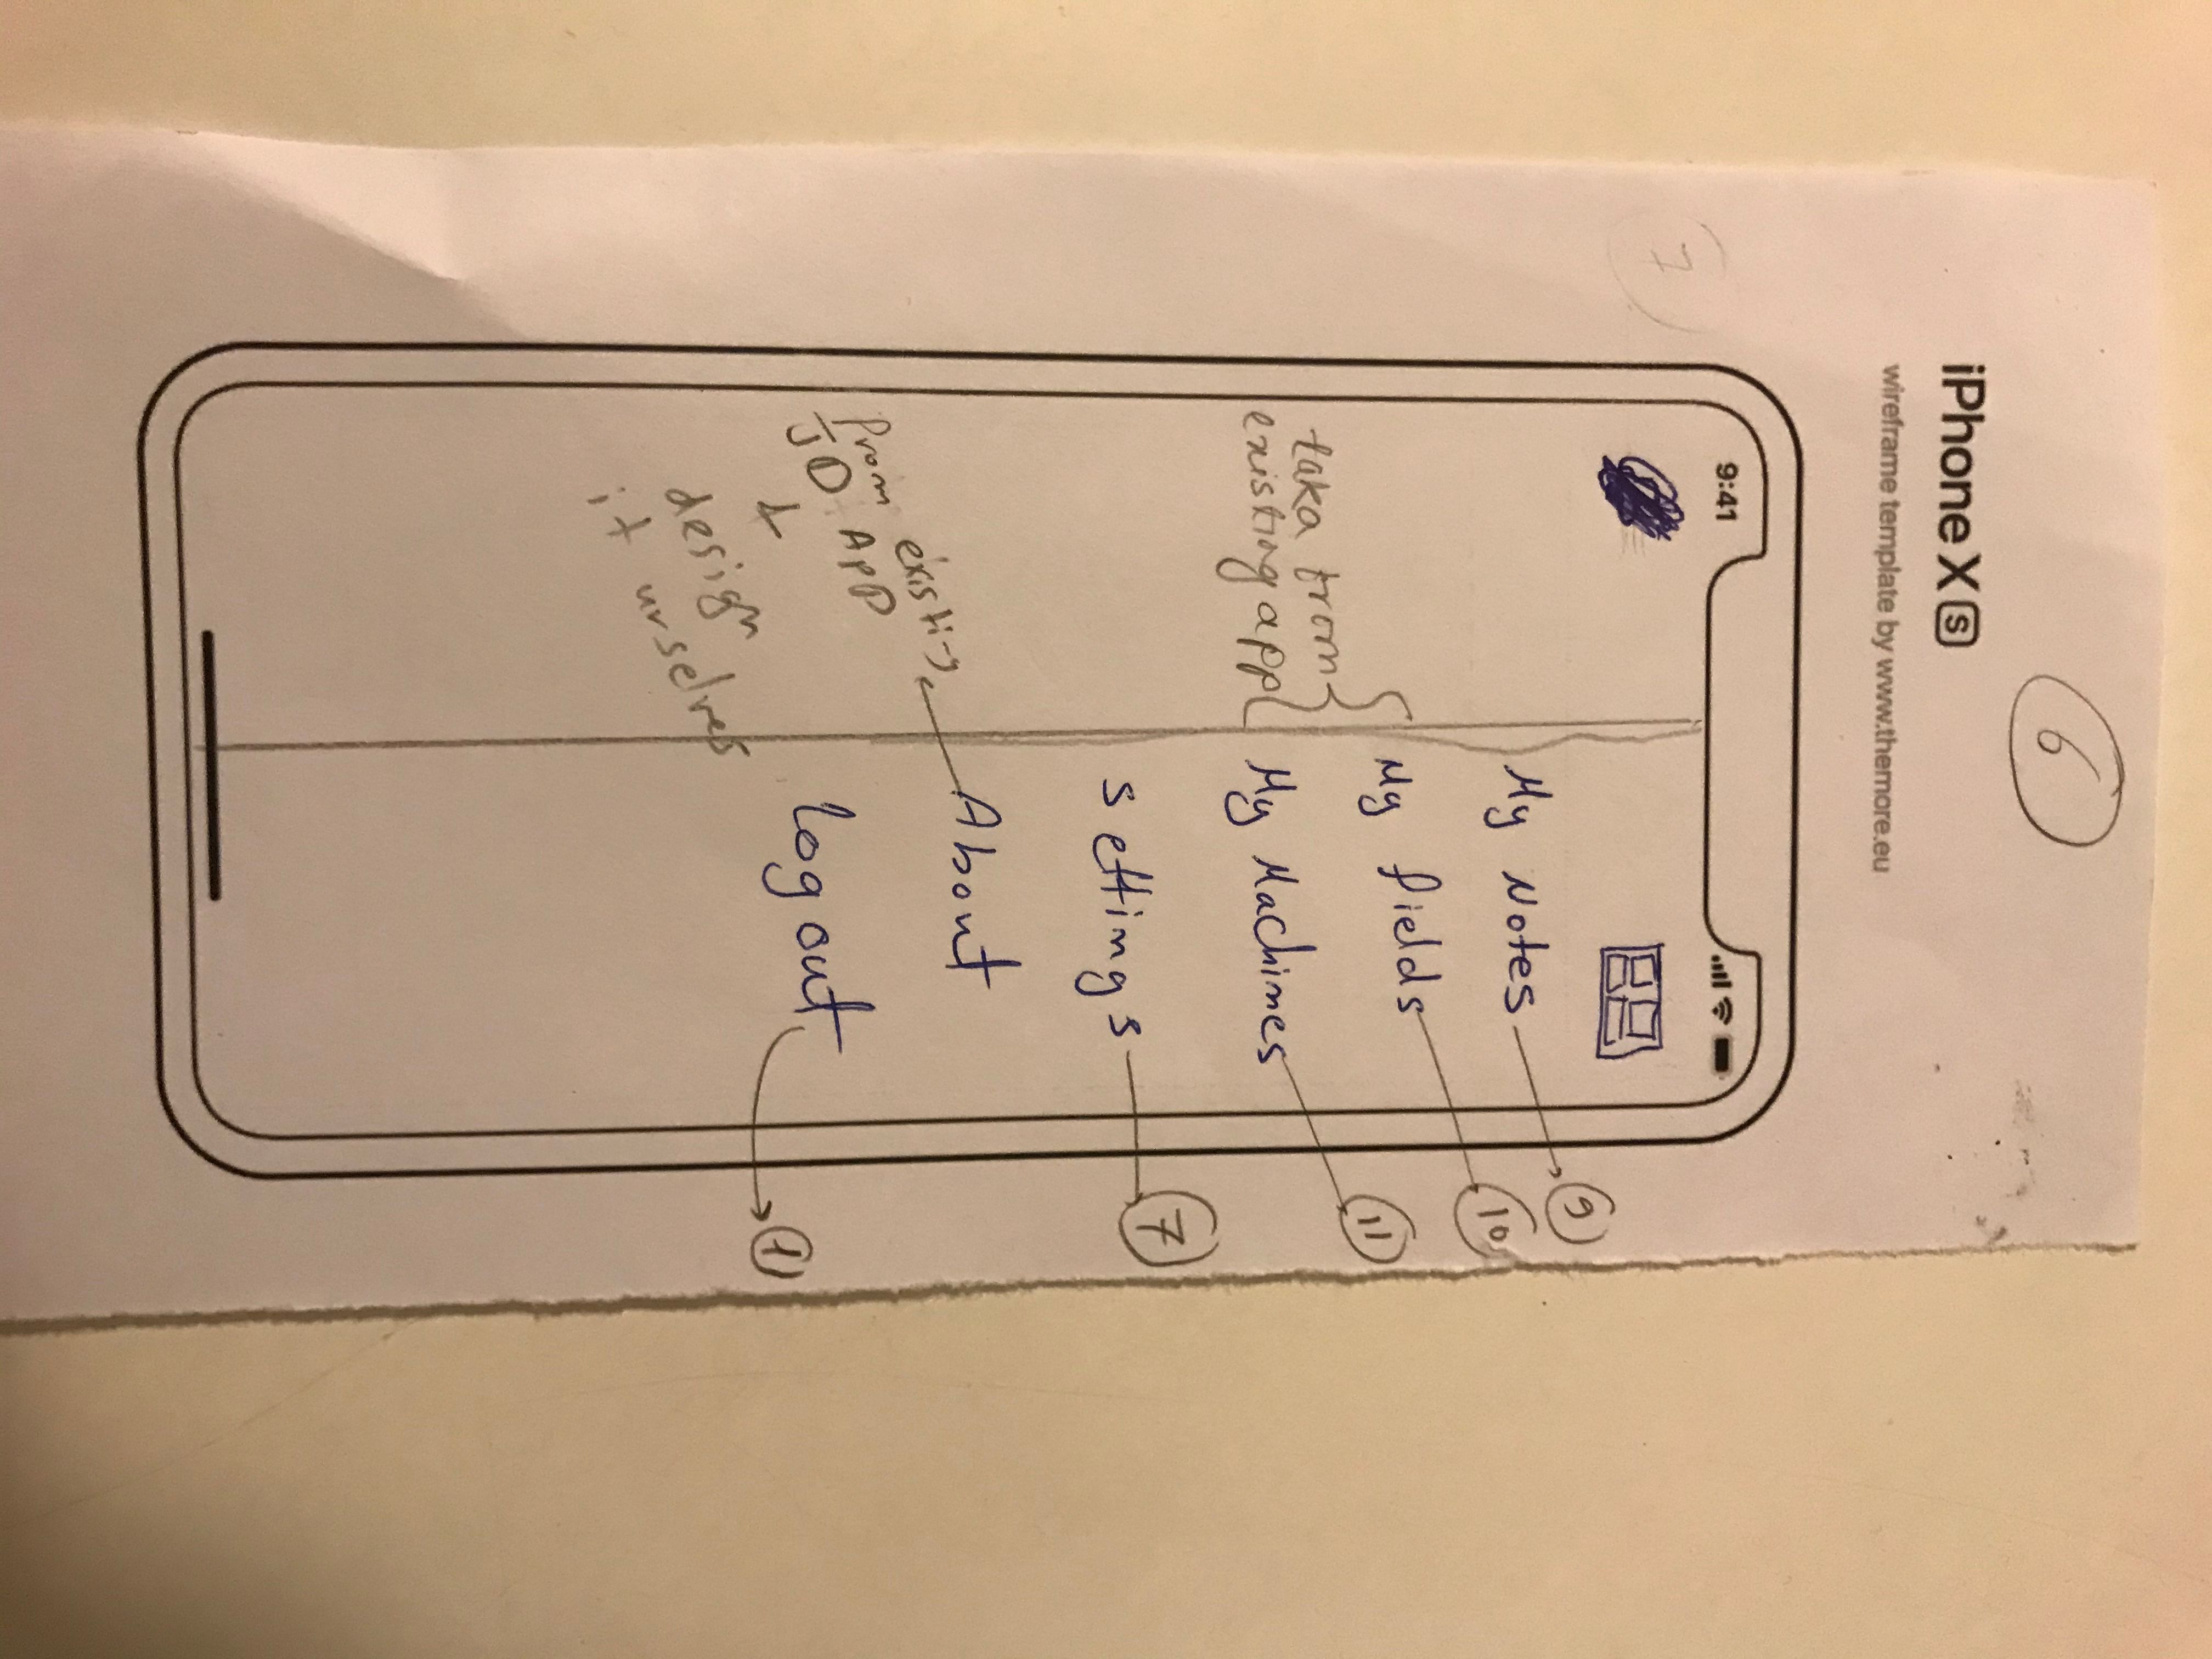 6
iPhone XS
wireframe template by www.themore.eu
9:41
7
My Notes
9
My fields
10
taka from
existing app
My Machines
11
settings
7
About
from existing
JD App
design
it urselves
log out
1